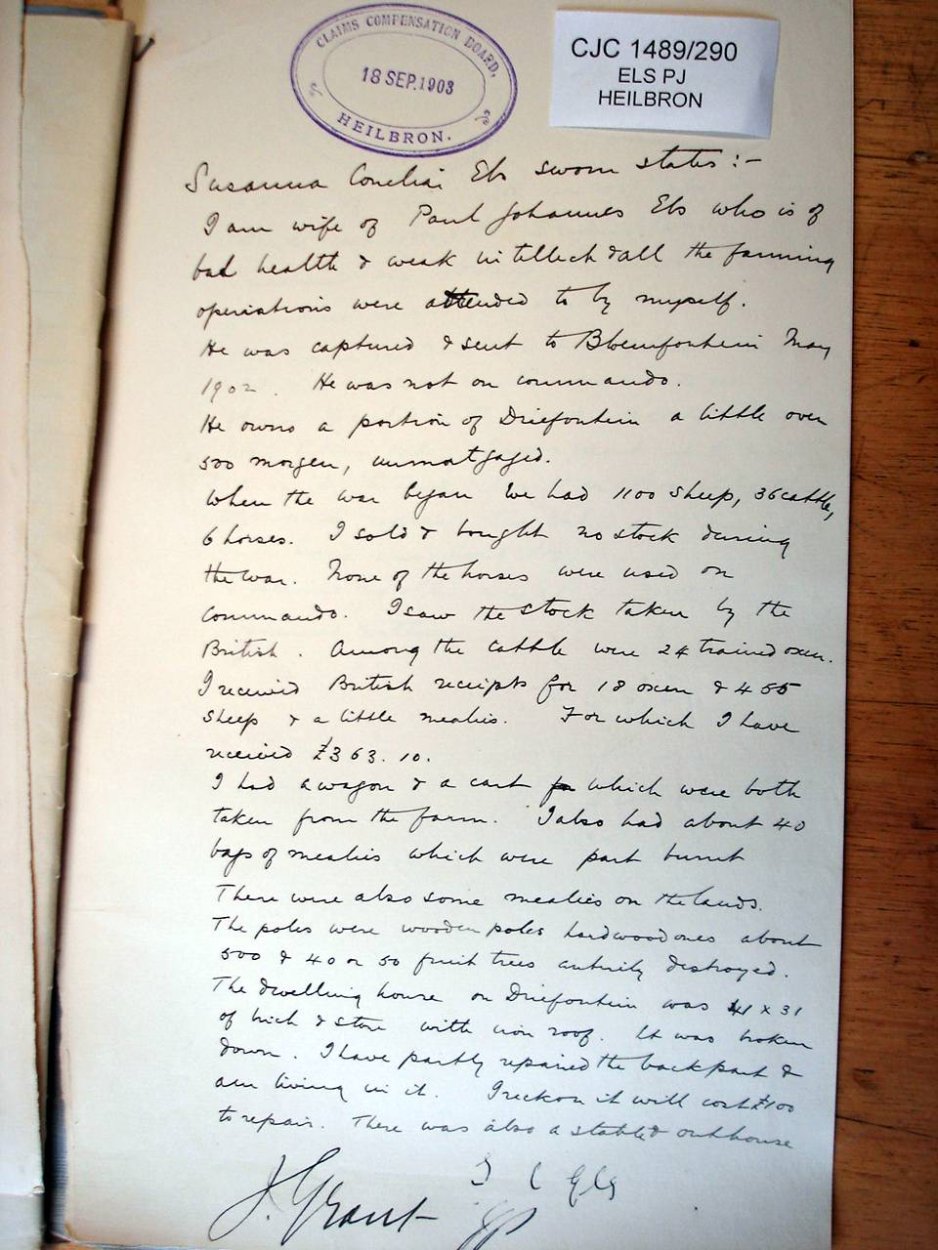 CLAIMS COMPENSATION BOARD,
18 SEP. 1903
HEILBRON.
CJC 1489/290
ELS PJ
HEILBRON
Susanna Cornelia Els sworn states :-
I am wife of Paul Johannes Els who is of
bad health & weak intellect & all the farming
operations were attended to by myself.
He was captured & sent to Bloemfontein May
1902. He was not on commando.
He owns a portion of Driefontein a little over
500 morgen, unmortgaged.
When the war began we had 1100 sheep, 36 cattle,
6 horses. I sold & bought no stock during
the war. None of the horses were used on
commando. I saw the stock taken by the
British. Among the cattle were 24 trained oxen.
I received British receipts for 18 oxen & 455
sheep & a little mealies. For which I have
received £363.10.
I had a wagon & a cart which were both
taken from the farm. I also had about 40
bags of mealies which were part burnt
There were also some mealies on the lands.
The poles were wooden poles hardwood ones about
500 & 40 or 50 fruit trees entirely destroyed.
The dwelling house on Driefontein was 41 x 31
of brick & stone with iron roof. It was broken
down. I have partly repaired the back part &
am living in it. I reckon it will cost £100
to repair. There was also a stable & outhouse
S C Els
J. Grant JP